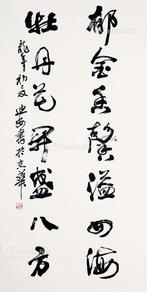 郁金香馨溢四海
牡丹花开盛八方
龙年初夏 迪安书于京华